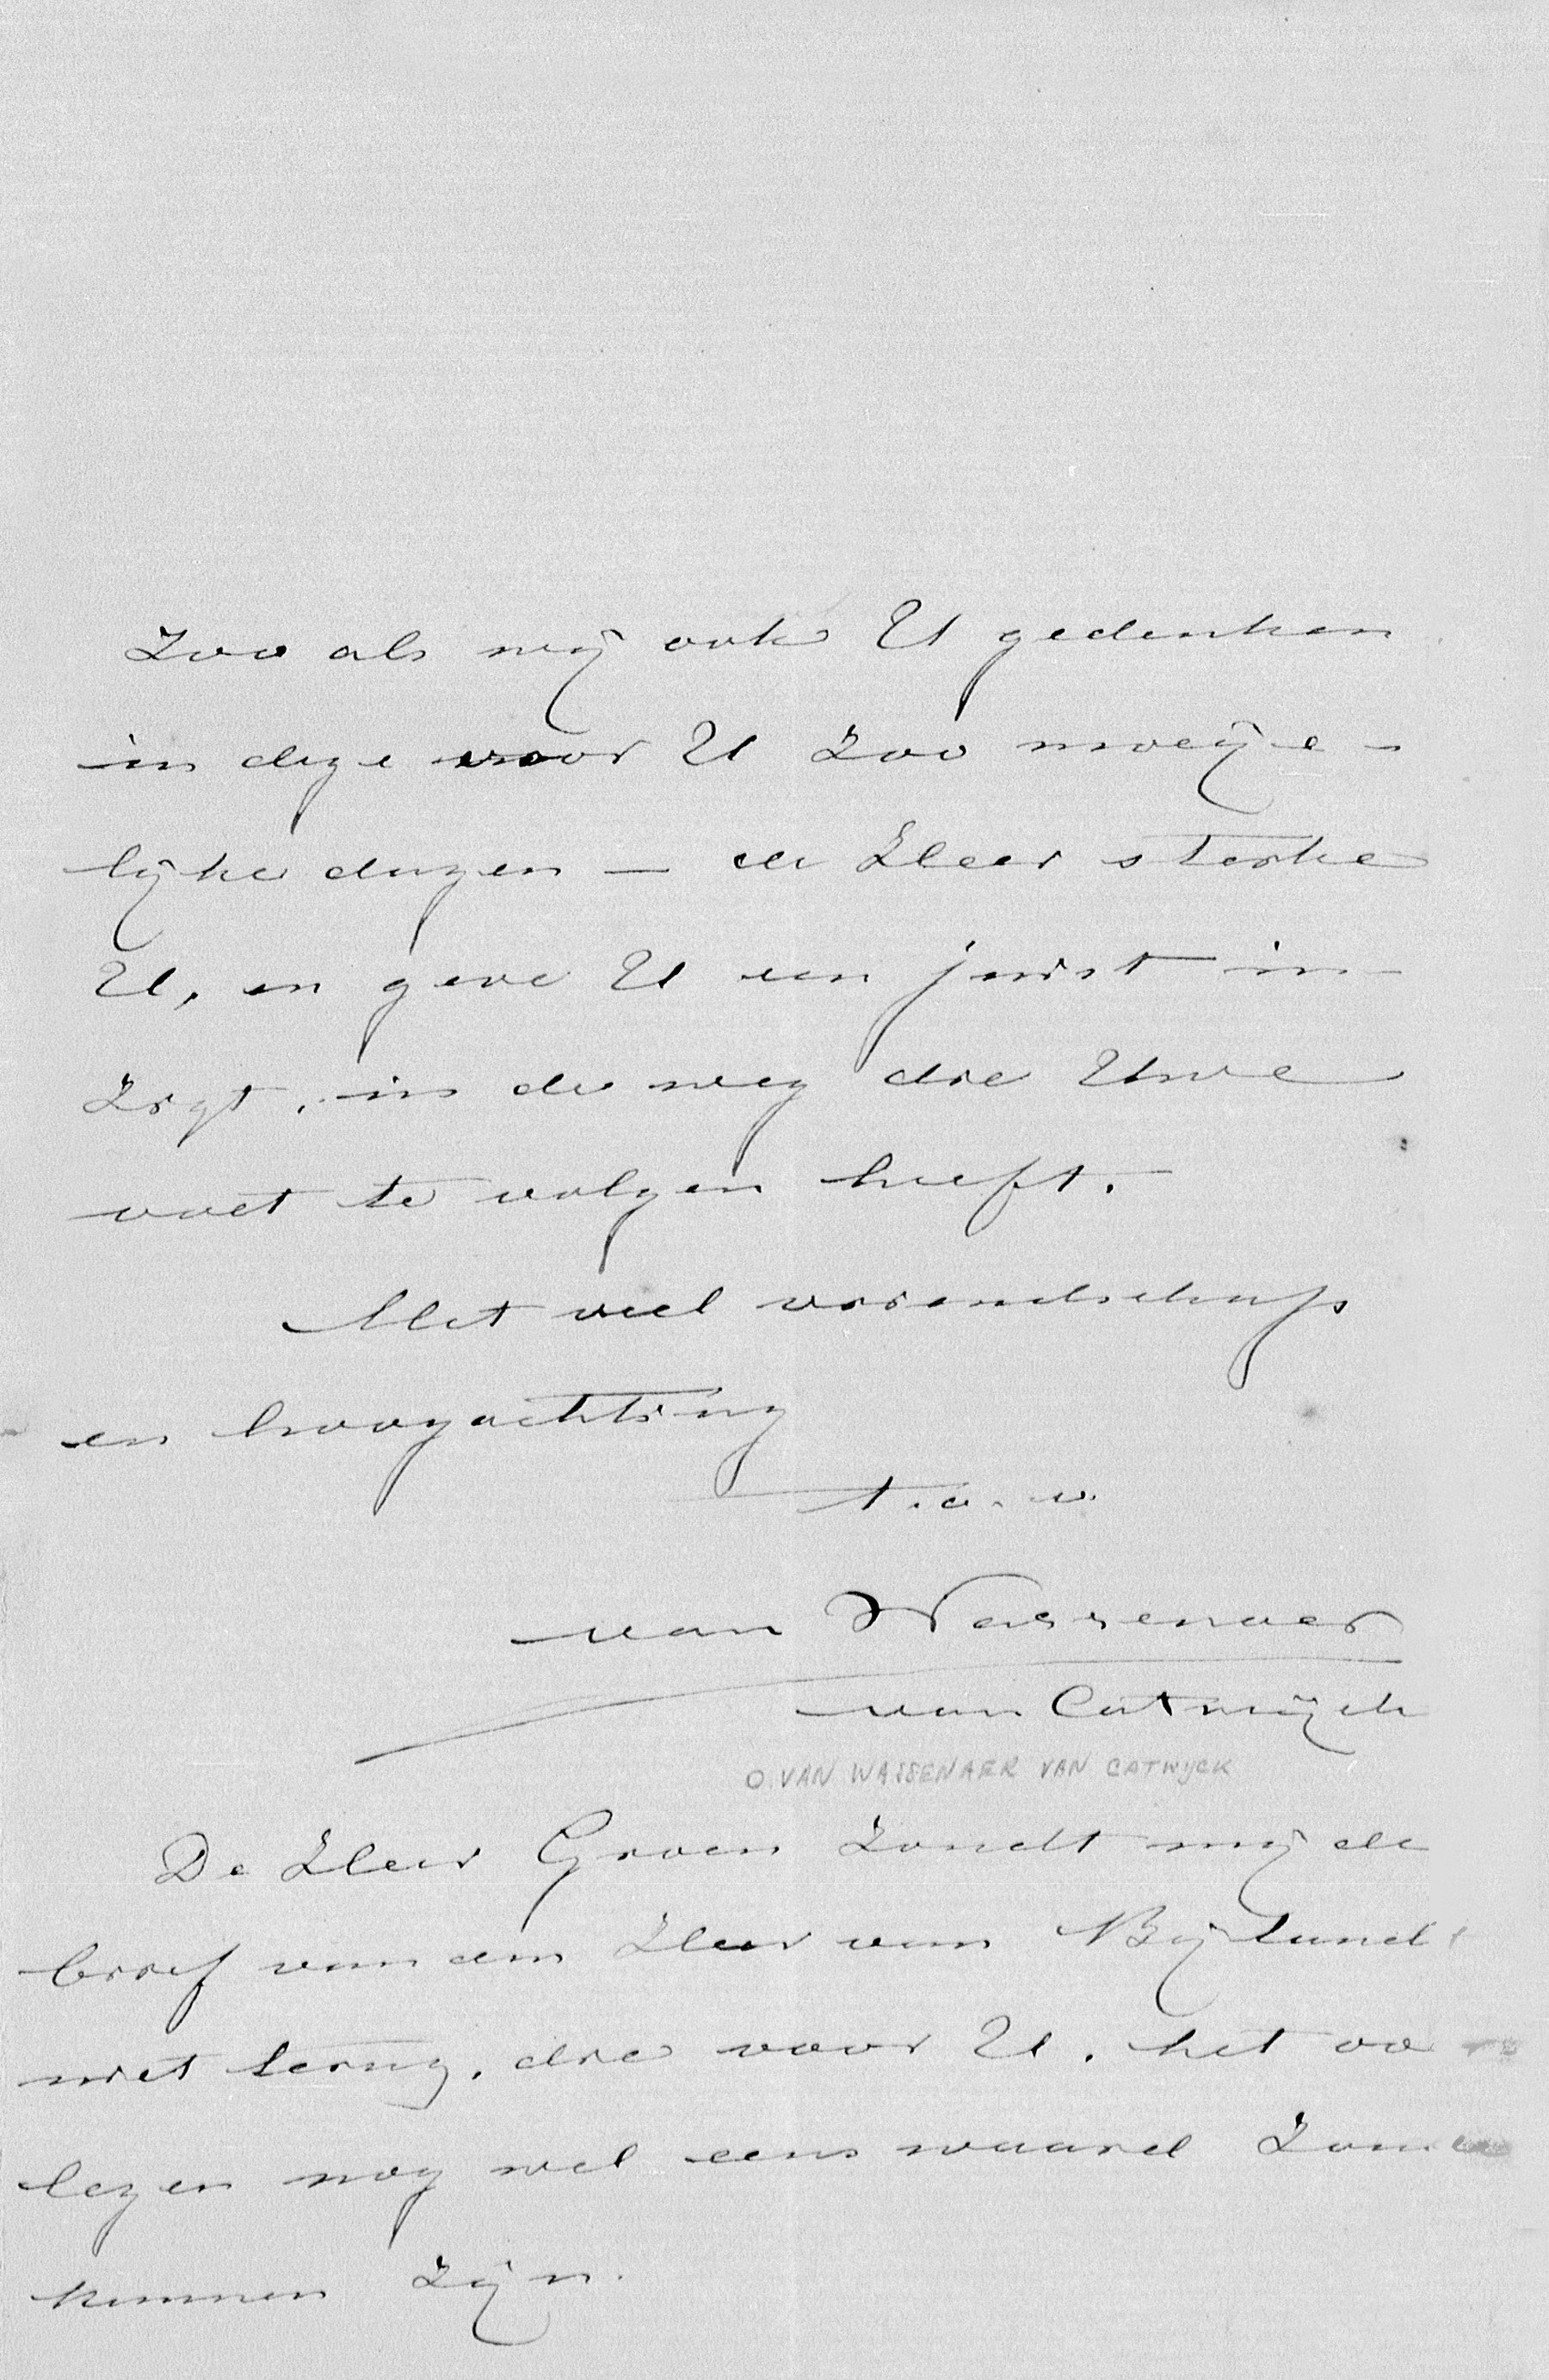 Zoo als wij ook U gedenken
in deze voor U zoo moeije-
lijke dagen — de Heer sterke
U, en geve U een juist in-
zigt, in de weg die Uwe
voet te volgen heeft.
Met veel vriendschap
en hoogachting
t.a.v.
van Wassenaer
van Catwijck
O. VAN WASSENAER VAN CATWIJCK
De Heer Groen zondt mij de
brief van den Heer van Bijlandt
niet terug, die voor U. het
lezen nog wel eens waard zou
kunnen zijn.